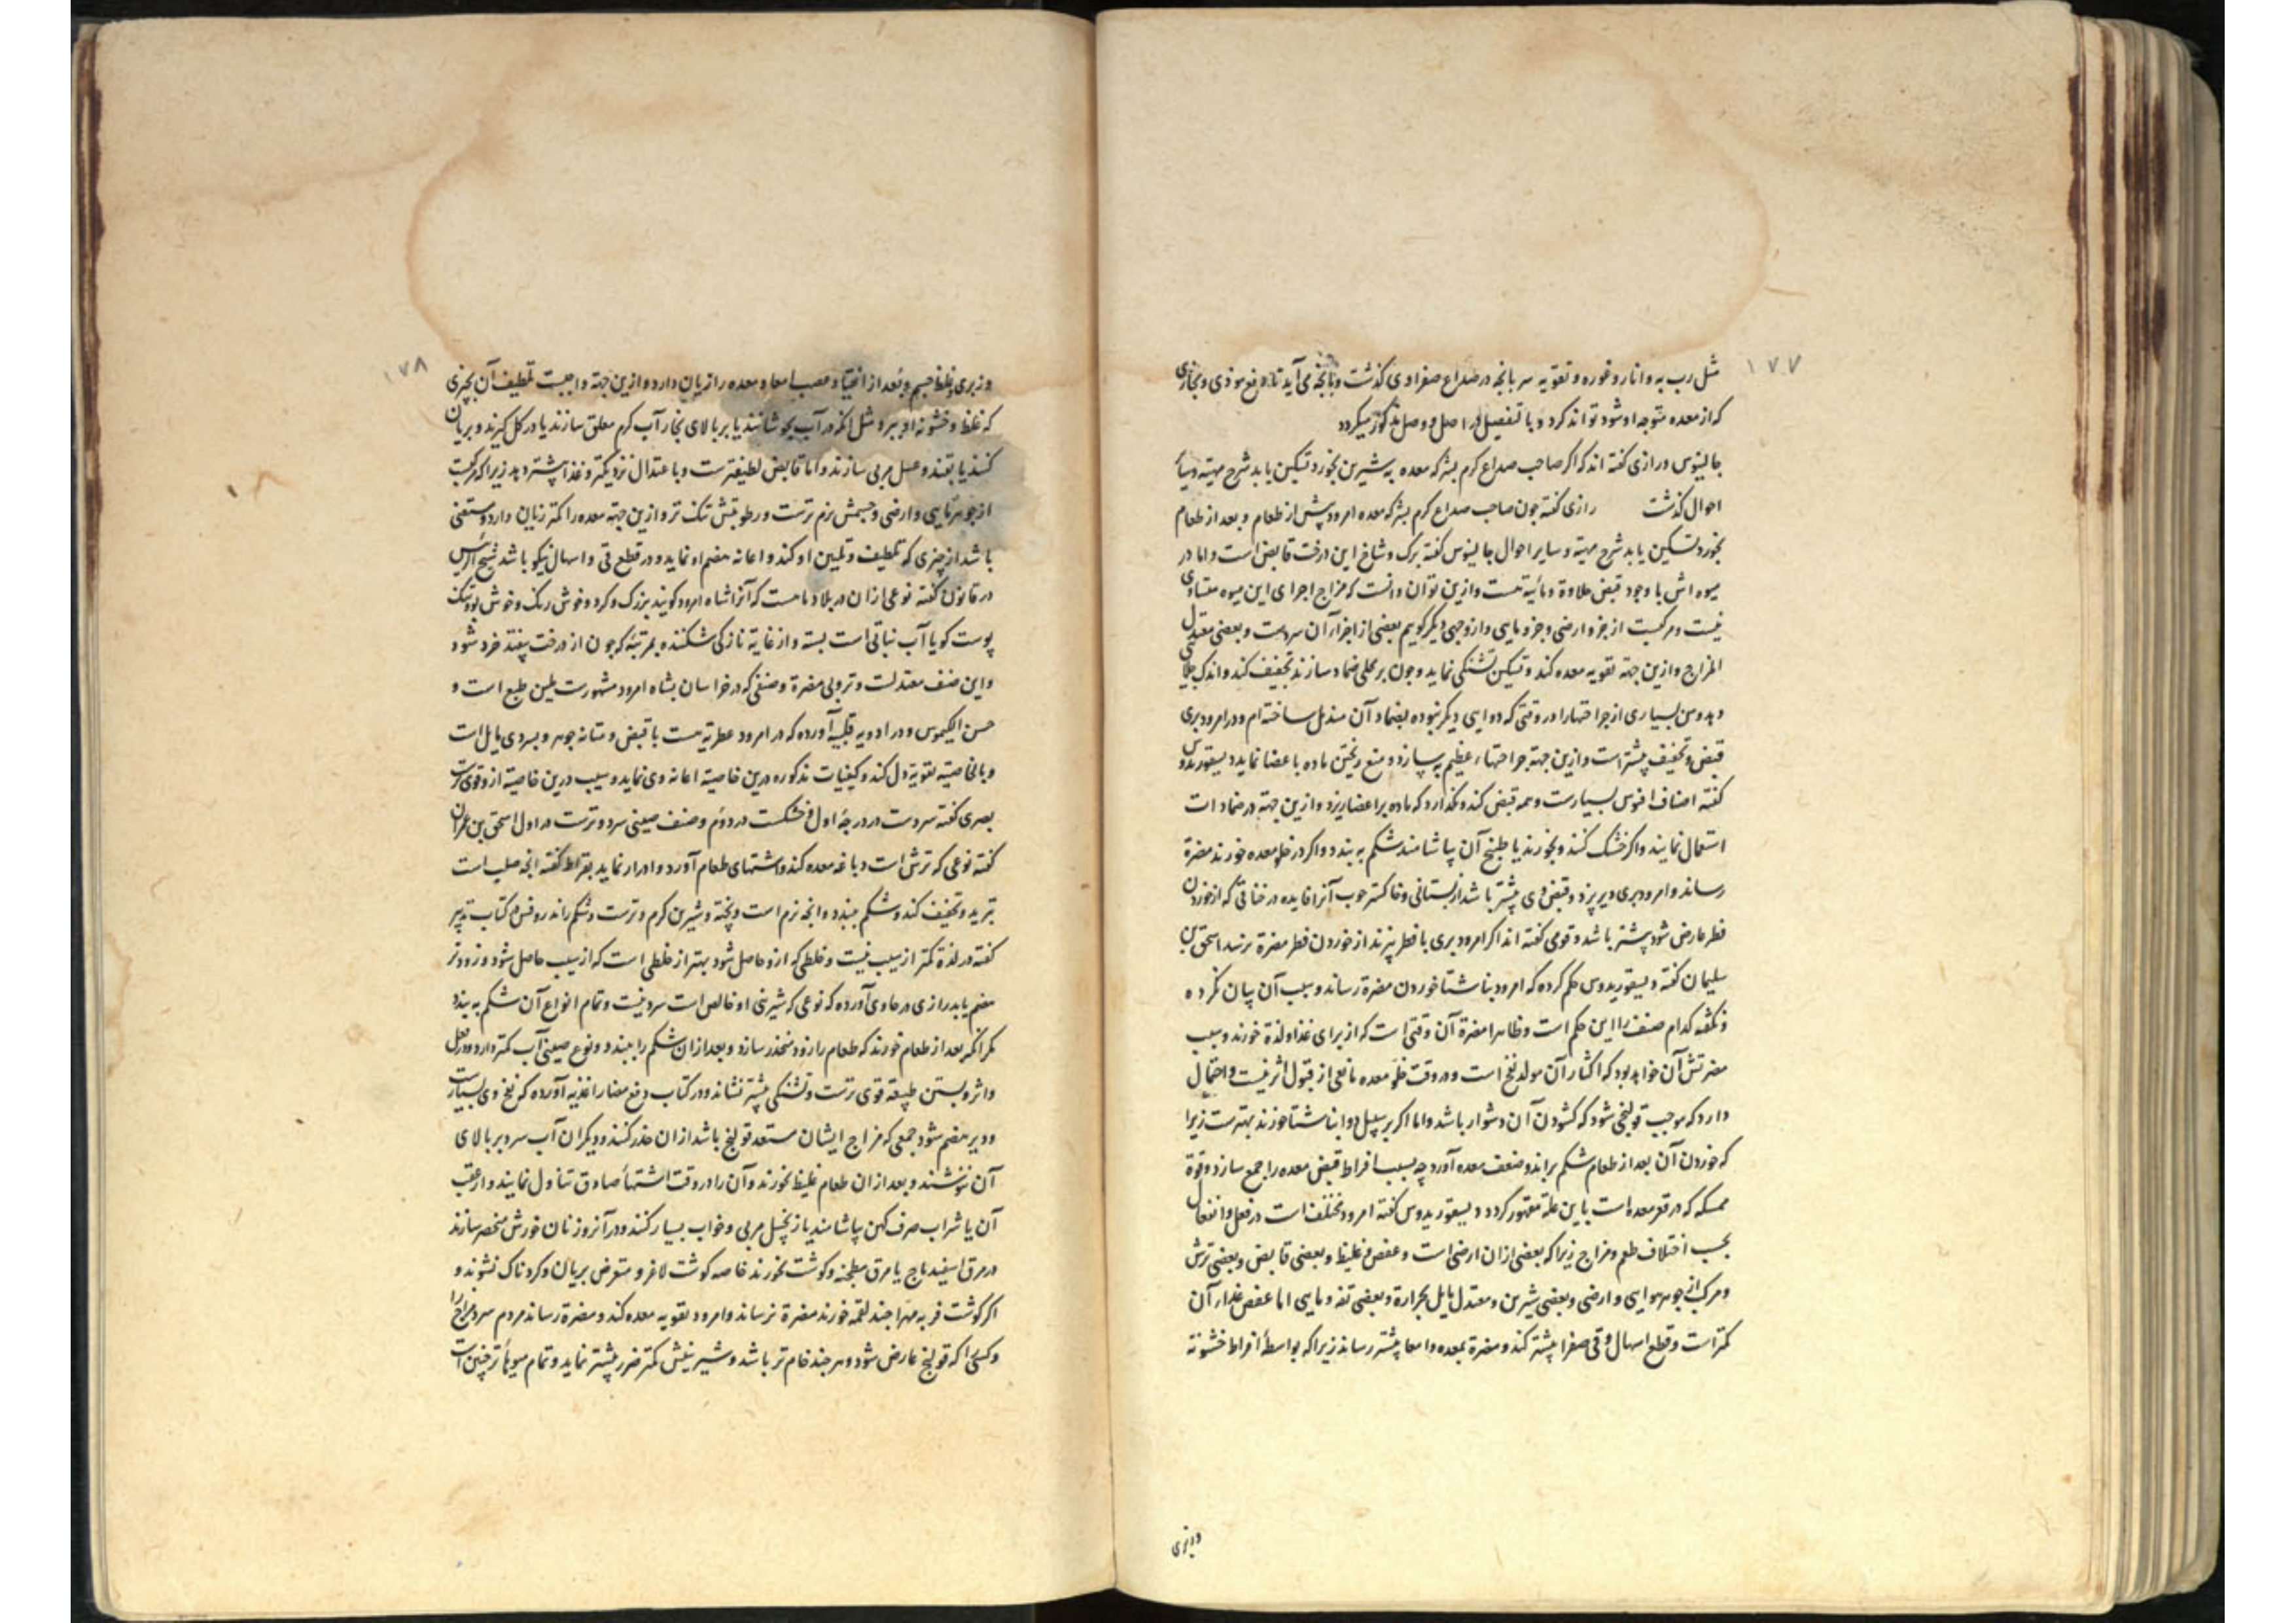 ۱۷۷
مثل رب به و انار و غوره و تقویه سر بانچه در صداع صفراوی کذشت و بانچه می آید تا دفع موذی و بخاری
که از معده متوجه او شود تواند کرد و با تفصیل در اصل و وصل مذکور میکردد
جالینوس و رازی کفته اند که اکر صاحب صداع کرم بشرکه معده به شیرین بخورد تسکین یابد شرح مهیته و سایر
احوال کذشت رازی کفته چون صاحب صداع کرم بشرکه معده امرود پیش از طعام و بعد از طعام
بخورد تسکین یابد شرح مهیته و سایر احوال جالینوس کفته برک و شاخ این درخت قابض است و اما در
میوه اش با وجود قبض حلاوة و مائیة هست و ازین توان دانست که مزاج اجزای این میوه متساوی
نیست و مرکبست از جزو ارضی و جزو مایی و از وجهی دیکر کویم بعضی از اجزاء آن سردست و بعضی معتدل
المزاج و ازین جهة تقویه معده کند و تسکین تشنکی نماید و چون بر محلی ضماد سازند تجفیف کند و اندک جلایی
و بدرستی بسیاری از جراحتها را در وقتی که دوایی دیکر نبوده بضماد آن مندمل ساخته ام و در امرود بری
قبض و تجفیف بیشتر است و ازین جهة جراحتهاء عظیم به سازد و منع ریختن ماده باعضا نماید دیسقوریدوس
کفته اصناف افیوس بسیارست و همه قبض کند و نکذارد که ماده بر اعضا ریزد و ازین جهة در ضمادات
استعمال نمایند و اکر خشک کنند و بخورند یا طبخ آن بیاشامند شکم به بندد و اکر در خلو معده خورند مضرة
رساند و امرود بری دیر پزد و قبض وی بیشتر باشد از بستانی و خاکستر چوب آنرا فایده در خناقی که از خوردن
فطر عارض شود بیشتر باشد و قومی کفته اند اکر امرود بری با فطر پزند از خوردن فطر مضرة نرسد اسحق بن
سلیمان کفته دیسقوریدوس حکم کرده که امرود بناشتا خوردن مضرة رساند و سبب آن بیان نکرده
و نکفته کدام صنف را این حکم است و ظاهرا مضرة آن وقتی است که از برای غذا و لذة خورند و سبب
مضرتش آن خواهد بود که اکثار آن مولد نفخ است و در وقت خلو معده مانعی از قبول اثر نیست و احتمال
دارد که موجب قولنجی شود که کشودن آن دشوار باشد و اما اکر بر سبیل دوا بناشتا خورند بهترست زیرا
که خوردن آن بعد از طعام شکم براند و ضعف معده آورد چه بسبب افراط قبض معده را جمع سازد و قوة
ممسکه که در قعر معده است باین علة مقهور کردد دیسقوریدوس کفته امرود مختلف است در فعل و انفعال
بحسب اختلاف طعم و مزاج زیرا که بعضی ازان ارضی است و عفص و غلیظ و بعضی قابض و بعضی ترش
و مرکب از جوهر هوایی و ارضی و بعضی شیرین و معتدل مایل بحرارة و بعضی تفه و مایی اما عفص غذاء آن
کمتر است و قطع اسهال و قی صفرا بیشتر کند و مضرة بمعده و امعا بیشتر رساند زیرا که بواسطه افراط خشونة
۱۷۸
و زبری و غلظ جسم و بعد از انقیاد عصب امعا و معده را زیان دارد و ازین جهة واجبست تلطیف آن بچیزی
که غلظ و خشونة او ببرد مثل انکه در آب بجوشانند یا بر بالای بخار آب کرم معلق سازند یا در کل کیرند و بریان
کنند یا بقند و عسل مربی سازند و اما قابض لطیفترست و باعتدال نزدیکتر و غذا بیشتر دهد زیرا که مرکبست
از جوهر مایی و ارضی و جسمش نرم ترست و رطوبتش تنک تر و ازین جهة معده را کمتر زیان دارد و مستغنی
باشد از چیزی که تلطیف و تلیین او کند و اعانة هضم او نماید و در قطع قی و اسهال نیکو باشد شیخ الرئیس
در قانون کفته نوعی ازان در بلاد ما هست که آنرا شاه امرود کویند بزرک و کرد و خوش رنک و خوش بو و تنک
پوست کویا آب نباتی است بسته و از غایة نازکی شکننده بمرتبه که چون از درخت بیفتد خرد شود
و این صنف معتدلست و تر و بی مضرة و صنفی که در خراسان بشاه امرود مشهورست ملین طبع است و
حسن الکیموس و در ادویه قلبیه آورده که در امرود عطریة هست با قبض و متانة جوهر و بسردی مایل است
و بالخاصیة تقویة دل کند و کیفیات مذکوره درین خاصیة اعانة وی نماید و سیب درین خاصیة ازو قوی ترست
بصری کفته سردست در درجه اول و خشکست در دوم و صنف صینی سرد و ترست در اول اسحق بن عمران
کفته نوعی که ترش است دباغة معده کند و اشتهای طعام آورد و ادرار نماید بقراط کفته انچه صلب است
تبرید و تجفیف کند و شکم ببندد و انچه نرم است و پخته و شیرین کرم و ترست و شکم راند روفس در کتاب تدبیر
کفته در لذة کمتر از سیب نیست و خلطی که ازو حاصل شود بهتر از خلطی است که از سیب حاصل شود و زودتر
هضم یابد رازی در حاوی آورده که نوعی که شیرینی او خالص است سرد نیست و تمام انواع آن شکم به بندد
مکر انکه بعد از طعام خورند که طعام را زود منحدر سازد و بعد ازان شکم را ببندد و نوع صینی آب کمتر دارد و در فعل
و اثر و بستن طبیعة قوی ترست و تشنکی بیشتر نشاند و در کتاب دفع مضار اغذیه آورده که نفخ وی بسیارست
و دیر هضم شود جمعی که مزاج ایشان مستعد قولنج باشد ازان حذر کنند و دیکران آب سرد بر بالای
آن ننوشند و بعد ازان طعام غلیظ نخورند و آن را در وقت اشتهاء صادق تناول نمایند و از عقب
آن یا شراب صرف کهن بیاشامند یا زنجبیل مربی و خواب بسیار کنند و در آنروز نان خورش منحصر سازند
در مرق اسفیدباج یا مرق مطجنه و کوشت نخورند خاصه کوشت لاغر و متعرض بریان و کردناک نشوند و
اکر کوشت فربه مهرا چند لقمه خورند مضرة نرساند و امرود تقویه معده کند و مضرة رساند مردم سرد مزاج را
و کسی را که قولنج عارض شود و هر چند خام تر باشد و شیرینیش کمتر ضرر بیشتر نماید و تمام میوهاء تر چنین است